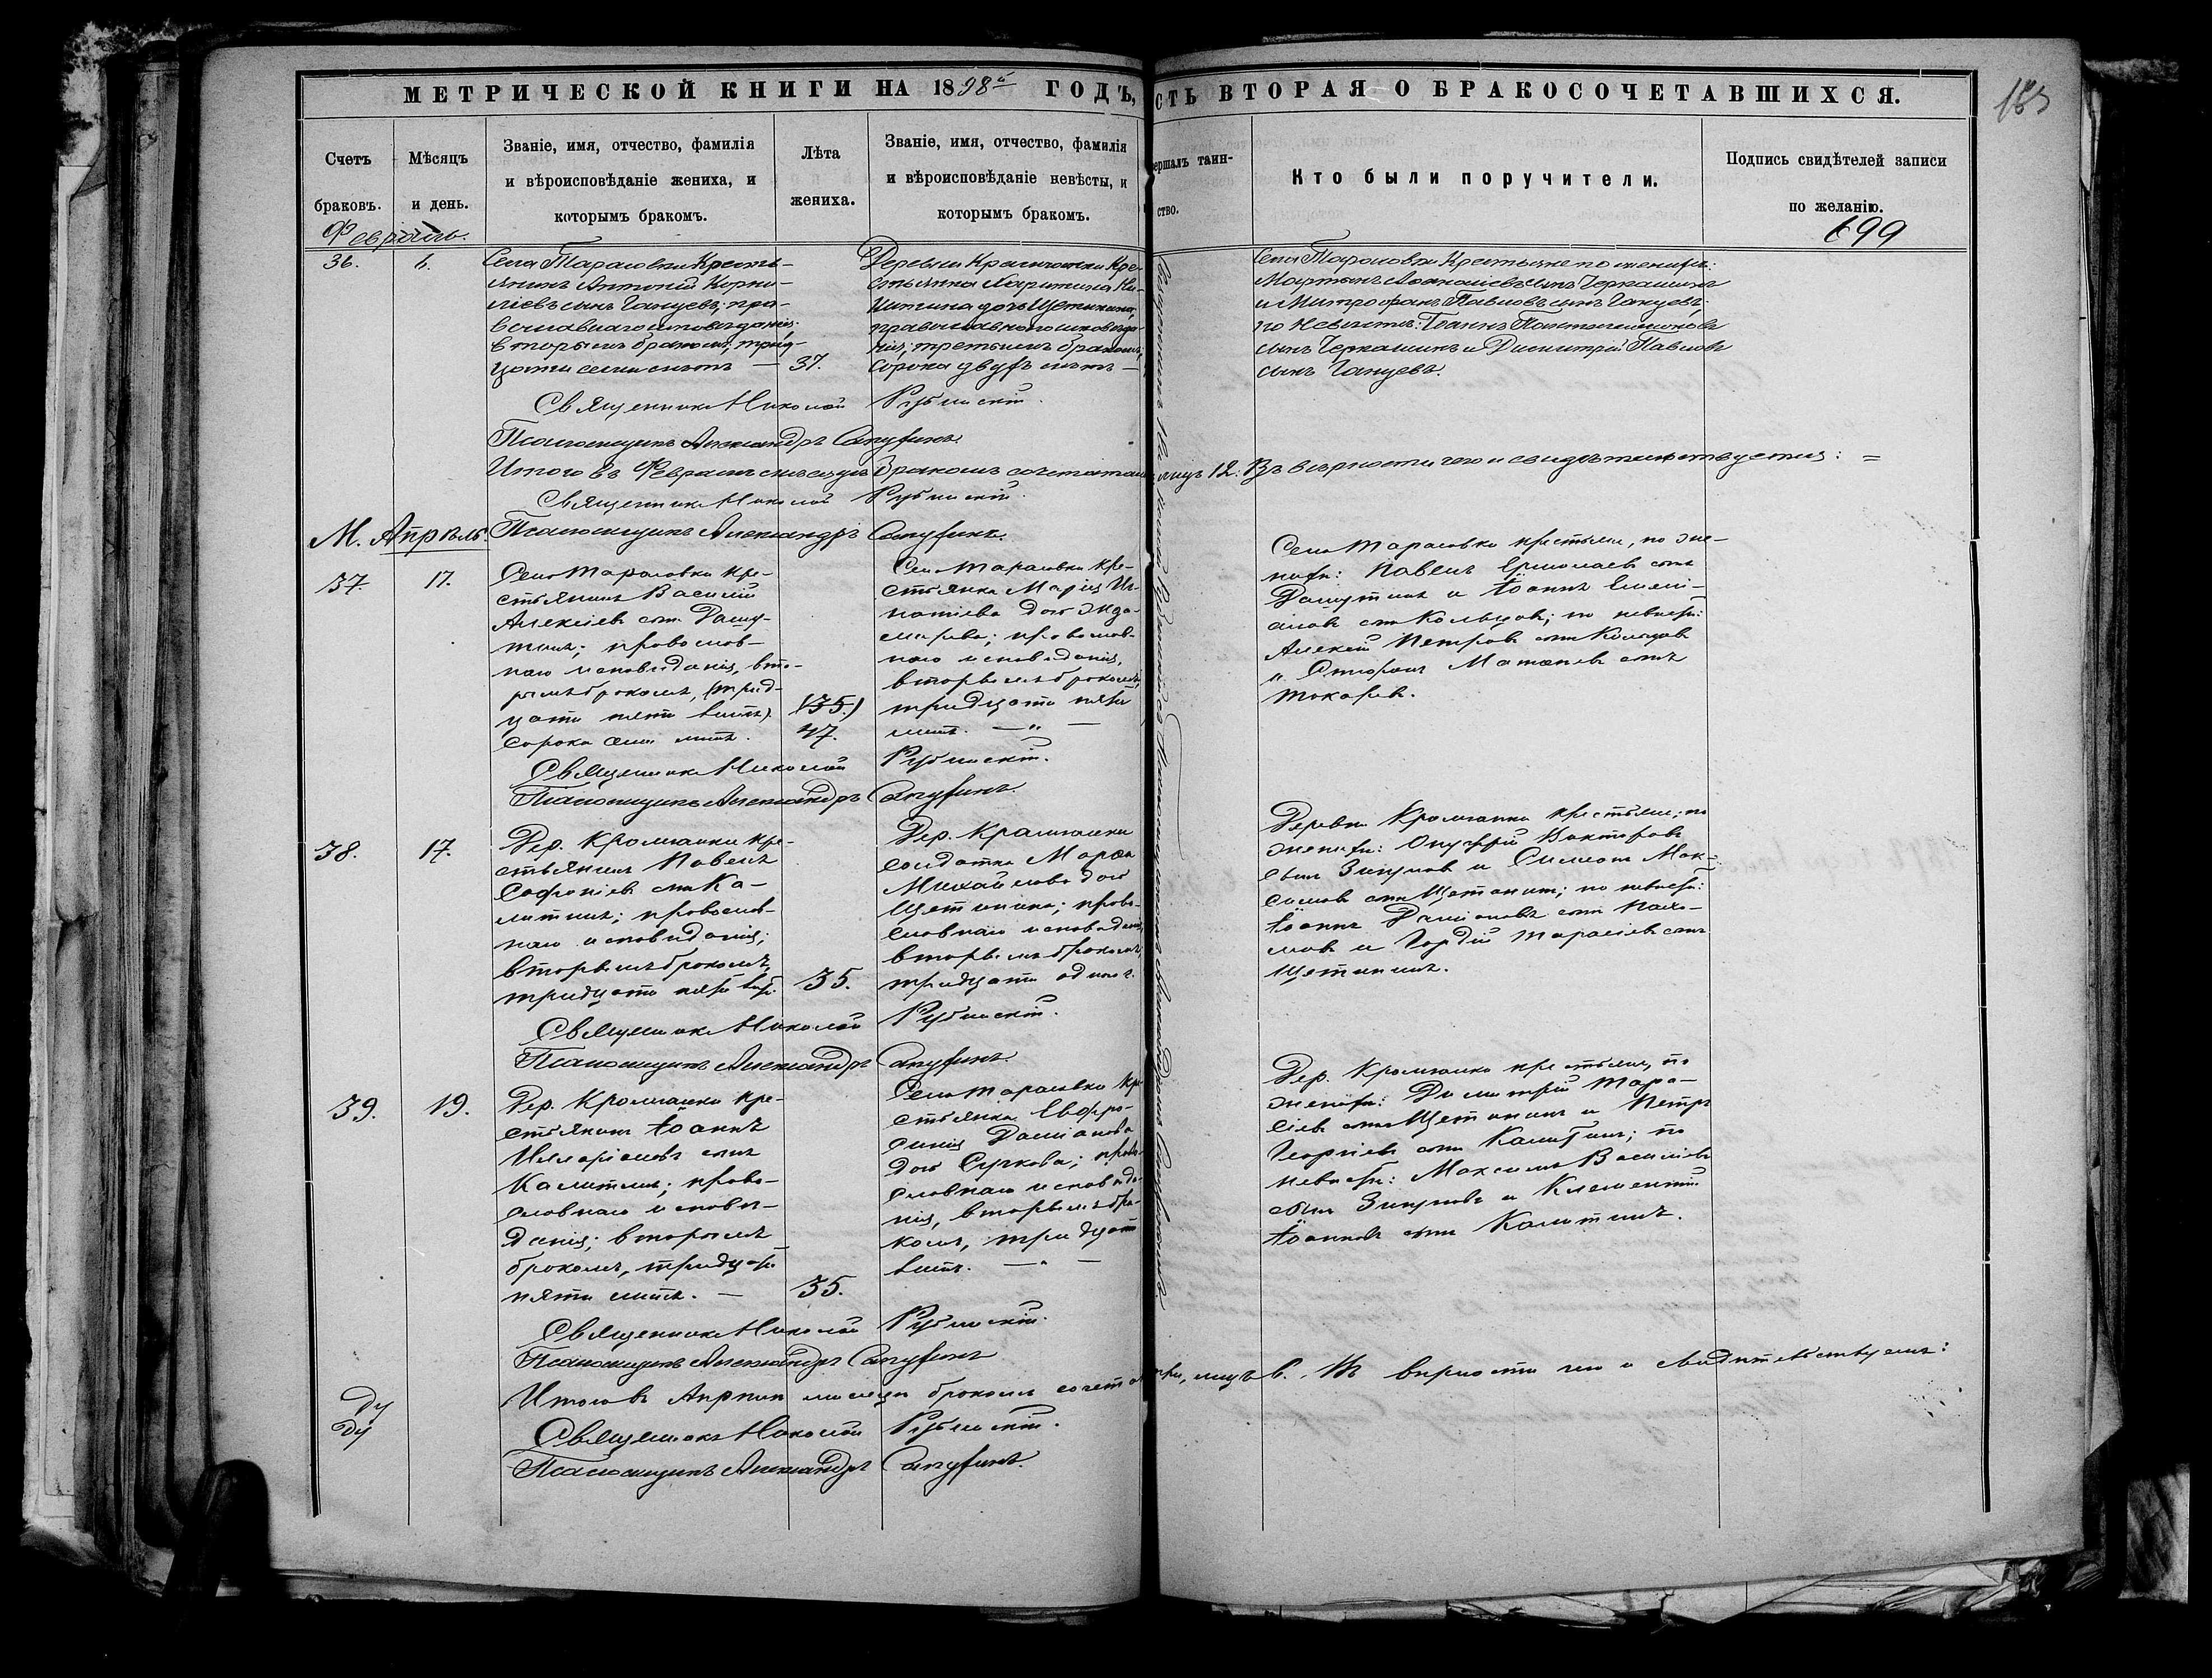 МЕТРИЧЕСКОЙ КНИГИ НА 1898й ГОДЪ,
СТЬ ВТОРАЯ О БРАКОСОЧЕТАВШИХСЯ.
Счетъ браковъ.
Мѣсяцъ и день.
Званіе, имя, отчество, фамилія
и вѣроисповѣданіе жениха, и
которымъ бракомъ.
Лѣта
жениха.
Званіе, имя, отчество, фамилія
и вѣроисповѣданіе невѣсты, и
которымъ бракомъ.
ершалъ таин-
ство.
Кто были поручители.
Подпись свидѣтелей записи
по желанію.
699
Февраль.
36.
6.
Села Тарасовки Кресть-
янинъ Антоній Корни-
ліевъ сынъ Ганцевъ; пра-
вославнаго исповѣданія;
вторымъ бракомъ; трид-
цати семи лѣтъ —
37.
Деревни Крамчанки Кре-
стьянка Харитина Ни-
китина дочь Щетинина,
православнаго исповѣда-
нія; третьимъ бракомъ;
сорока двухъ лѣтъ —
Села Тарасовки Крестьяне по женихѣ:
Мартынъ Аѳанасіевъ сынъ Черкашинъ
и Митрофанъ Павловъ сынъ Ганцевъ;
по невѣстѣ: Іоаннъ Пантелеимоновъ
сынъ Черкашинъ и Димитрій Павловъ
сынъ Ганцевъ.
Священникъ Николай Рубинскій.
Псаломщикъ Александръ
Итого въ Февралѣ мѣсяцѣ бракомъ сочетал лицъ 12. Въ вѣрности чего и свидѣтельствуемъ: =
Священникъ Николай Рубинскій.
М. Апрѣль.
Псаломщикъ Александръ
37.
17.
Села Тарасовки кре-
стьянинъ Василій
Алексіевъ сынъ Дашу-
тинъ; православ-
наго исповѣданія, вто-
рымъ бракомъ, (трид-
цати пяти лѣтъ)
сорока семи лѣтъ.
(35.)
47.
Села Тарасовки кре-
стьянка Марія Иг-
натіева дочь Жда-
марева; православ-
наго исповѣданія,
вторымъ бракомъ,
тридцати пяти
лѣтъ. — " —
Села Тарасовки крестьяне, по же-
нихѣ: Павелъ Ермолаевъ сынъ
Дашутинъ и Іоаннъ Емелі-
ановъ сынъ Кольцовъ; по невѣстѣ:
Алексій Петровъ сынъ Кольцовъ
и Стефанъ Матвѣевъ сынъ
Токаревъ.
Священникъ Николай Рубинскій.
Псаломщикъ Александръ
38.
17.
Дер. Крамчанки кре-
стьянинъ Павелъ
Софроніевъ сынъ Ка-
литинъ; православ-
наго исповѣданія;
вторымъ бракомъ,
тридцати пяти лѣтъ.
35.
Дер. Крамчанки
солдатка Марѳа
Михайлова дочь
Щетинина; право-
славнаго исповѣданія,
вторымъ бракомъ,
тридцати одного г.
Деревни Крамчанки крестьяне; по
женихѣ: Онуфрій Викторовъ
сынъ Зинуковъ и Симеонъ Мак-
симовъ сынъ Щетининъ; по невѣстѣ:
Іоаннъ Даміановъ сынъ Пахо-
мовъ и Гордій Тарасіевъ сынъ
Щетининъ.
Священникъ Николай Рубинскій.
Псаломщикъ Александръ
39.
19.
Дер. Крамчанки кре-
стьянинъ Іоаннъ
Илларіоновъ сынъ
Калитинъ; право-
славнаго исповѣ-
данія; вторымъ
бракомъ, тридцати
пяти лѣтъ. —
35.
Села Тарасовки кре-
стьянка Евфро-
синія Даміанова
дочь Сучкова; право-
славнаго исповѣда-
нія, вторымъ бра-
комъ, тридцати
лѣтъ. — " —
Дер. Крамчанки крестьяне, по
женихѣ: Димитрій Тара-
сіевъ сынъ Щетининъ и Петръ
Георгіевъ сынъ Калитинъ; по
невѣстѣ: Максимъ Василіевъ
сынъ Зинуковъ и Климентій
Іоанновъ сынъ Калитинъ.
Священникъ Николай Рубинскій.
Псаломщикъ Александръ
Итого въ Апрѣлѣ мѣсяцѣ бракомъ сочет лицъ 6. Въ вѣрности чего и свидѣтельствуемъ:
Священникъ Николай Рубинскій.
Псаломщикъ Александръ